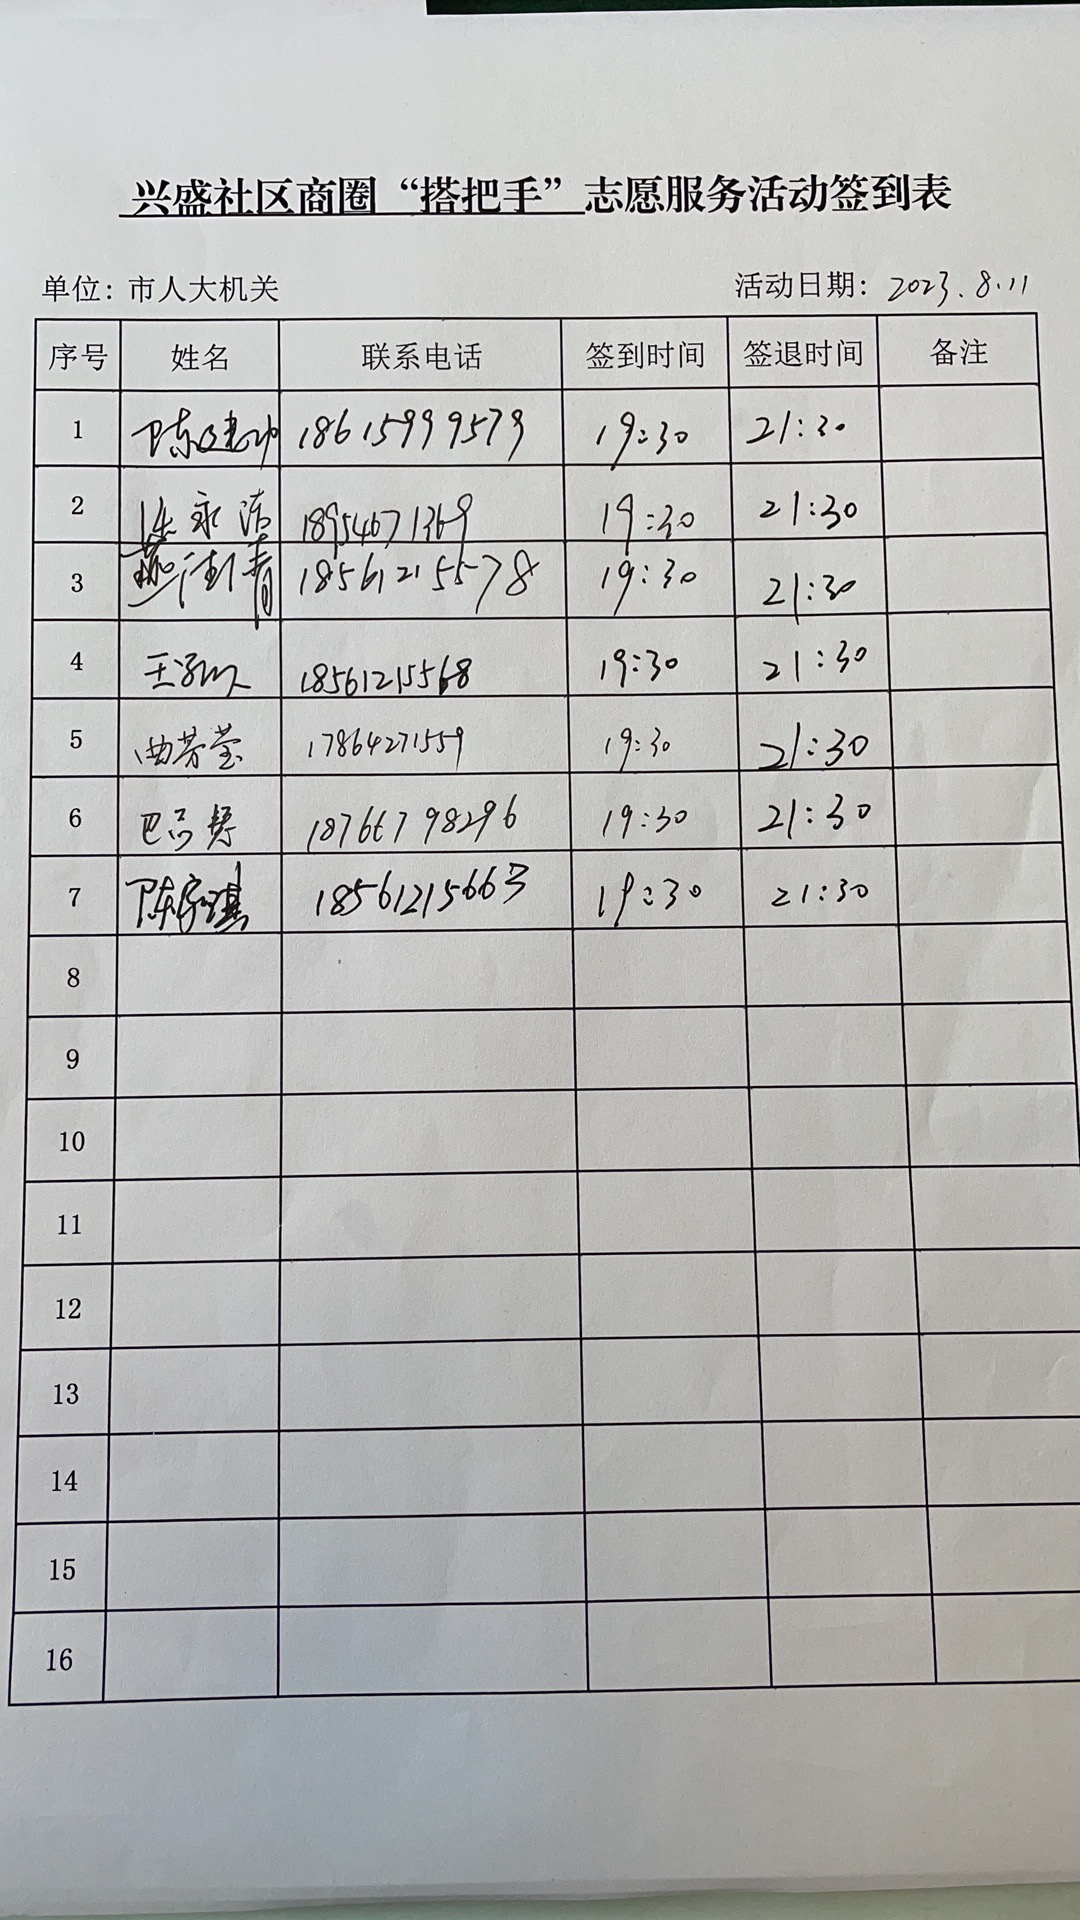 兴盛社区商圈“搭把手”志愿服务活动签到表
单位：市人大机关 活动日期：2023.8.11
序号 姓名 联系电话 签到时间 签退时间 备注
1 陈建功 18615999579 19:30 21:30
2 永清 18954671369 19:30 21:30
3 燕清 18561215578 19:30 21:30
4 王 18561215568 19:30 21:30
5 曲芳莹 17864271559 19:30 21:30
6 巴品 18766798296 19:30 21:30
7 陈家琪 18561215663 19:30 21:30
8
9
10
11
12
13
14
15
16